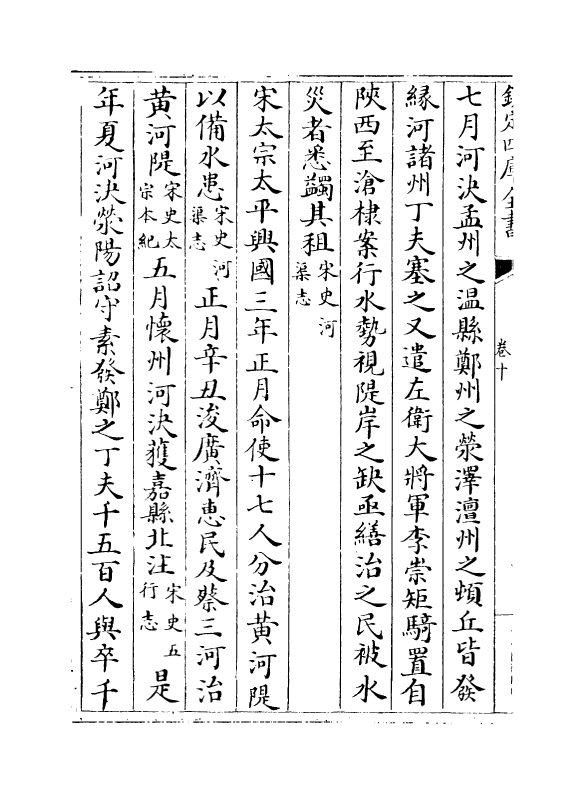 欽定四庫全書
卷十
七月河決孟州之温縣鄭州之滎澤澶州之頓丘皆發
緣河諸州丁夫塞之又遣左衛大將軍李崇矩騎置自
陝西至滄棣案行水勢視隄岸之缺亟繕治之民被水
災者悉蠲其租宋史河渠志
宋太宗太平興國三年正月命使十七人分治黄河隄
以備水患宋史河渠志正月辛丑浚廣濟惠民及蔡三河治
黄河隄宋史太宗本紀五月懷州河決獲嘉縣北注宋史五行志是
年夏河決滎陽詔守素發鄭之丁夫千五百人與卒千